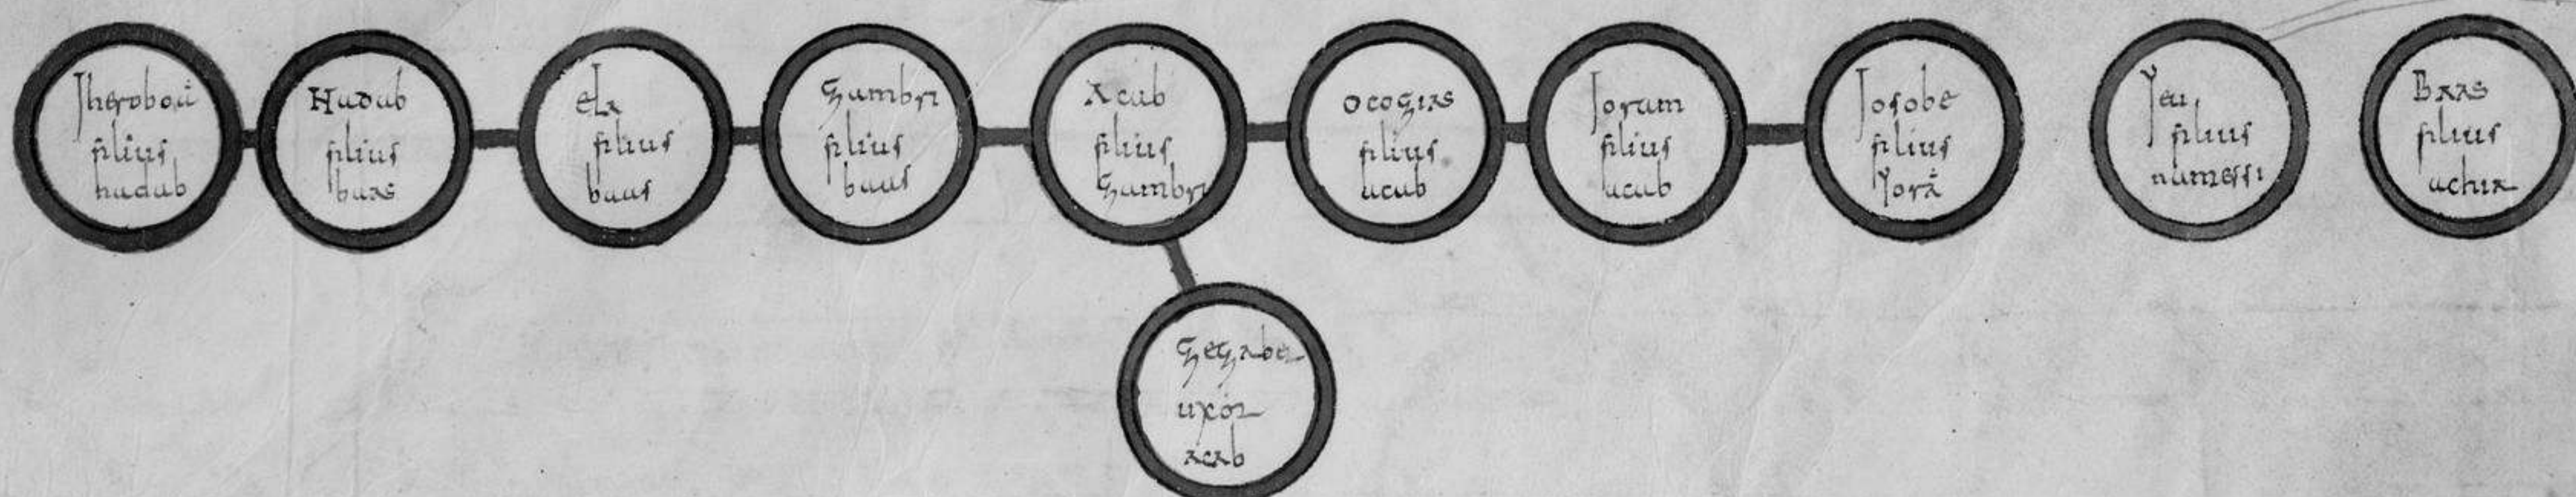 Jheroboā
filius
nadab
Nadab
filius
baas
ela
filius
baas
Zambri
filius
baas
Acab
filius
Zambri
ocozias
filius
acab
Joram
filius
acab
Josobe
filius
Yorā
Yeu
filius
namessi
Baas
filius
achia
ZeZabel
uxor
acab